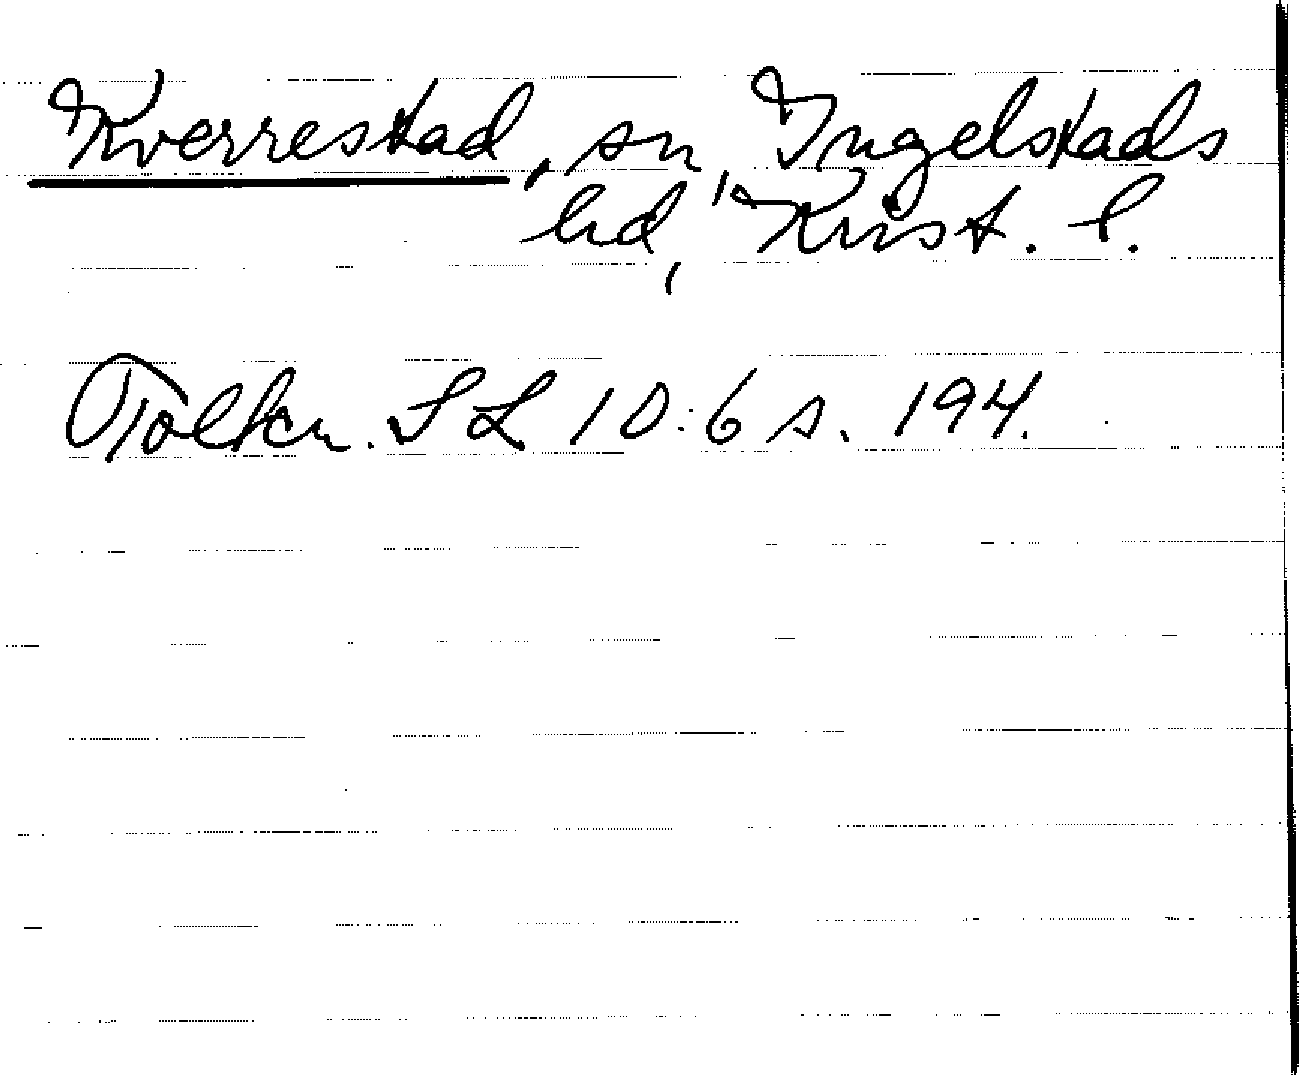 Kverrestad, sn, Ingelstads
hd, Krist. l.
Tolkn. SL 10:6 s. 194.